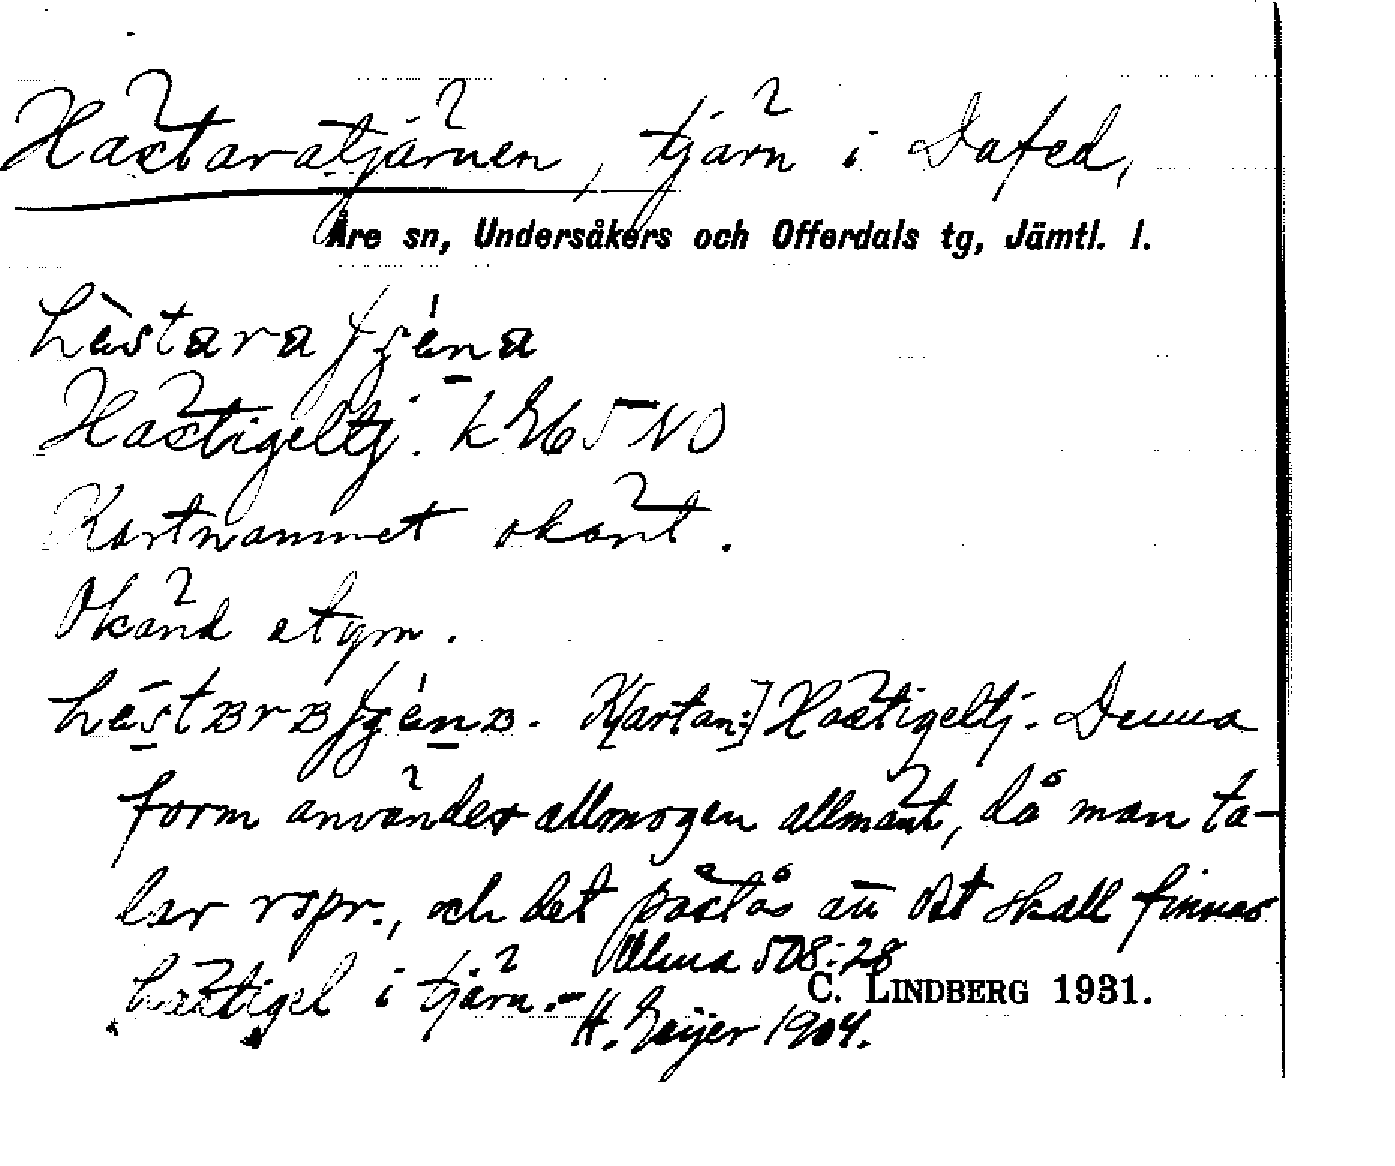 Hästaratjärnen, tjärn i Dufed,
Åre sn, Undersåkers och Offerdals tg, Jämtl. l.
hèstara
Hästigeltj. k 65 NO
Kartnamnet okänt.
Okänd etym.
K[artan:] Hästigeltj. Denna
form använder allmogen allmänt, då man ta-
lar rspr., och det påstås att det skall finnas
hästigel i tjärn. -
Ulma 508:28
C. LINDBERG 1931.
H. Geijer 1904.